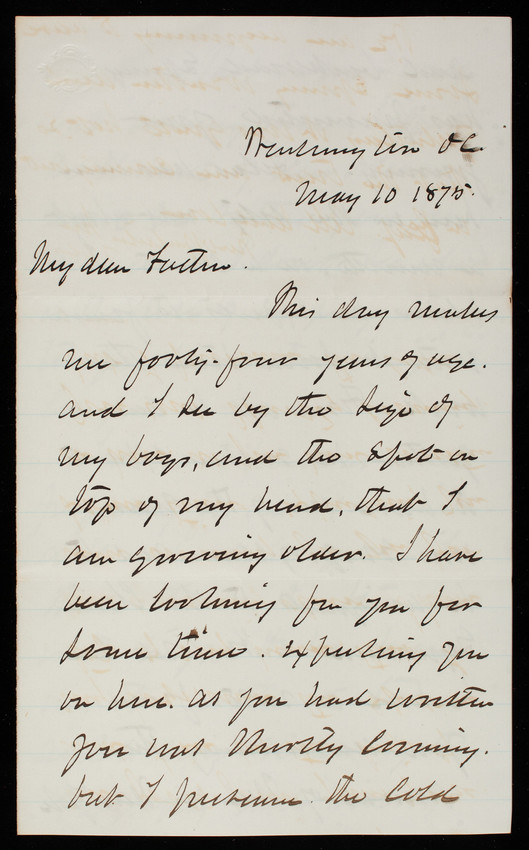 Washington DC.
May 10 1875.
My dear Father.
This day makes
me forty-four years of age.
and I see by the size of
my boys, and the spot on
top of my head, that I
am growing older. I have
been looking for you for
some time. expecting you
on here. as you had written
you was shortly coming.
but I presume the cold